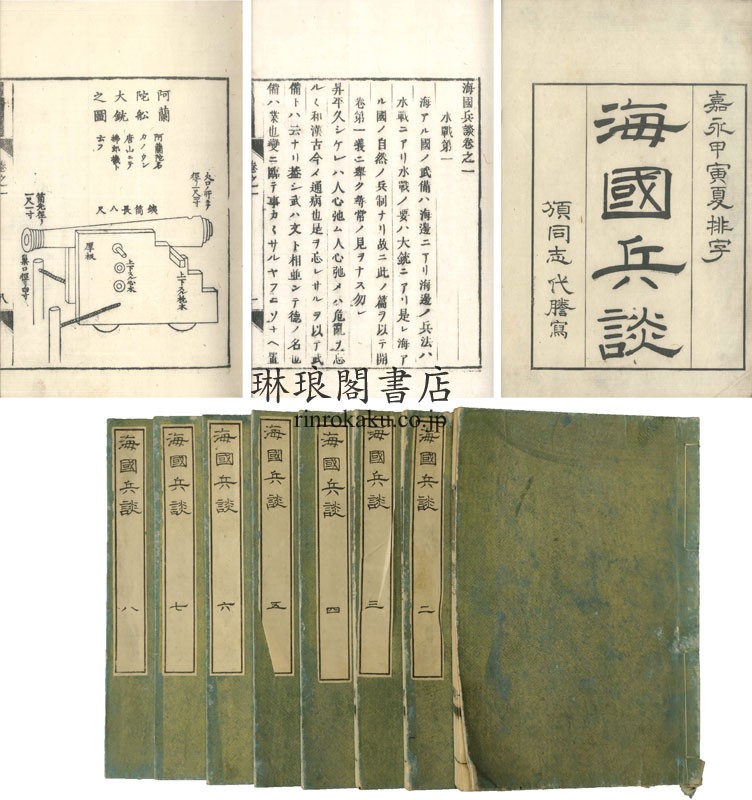 嘉永甲寅夏排字
海國兵談
頒同志代謄寫
海國兵談卷之一
水戰第一
海アル國ノ武備ハ海邊ニアリ海邊ノ兵法ハ
水戰ニアリ水戰ノ要ハ大銃ニアリ是レ海ア
ル國ノ自然ノ兵制ナリ故ニ此ノ篇ヲ以テ開
卷第一義ニ擧ク尋常ノ見ヲナス勿レ
昇平久シケレハ人心弛ム人心弛メハ危亂ヲ忘
ルヽ和漢古今ノ通病也是ヲ忘レサルヲ以テ武
備トハ云ナリ蓋シ武ハ文ト相並ンテ德ノ名也
備ハ業也變ニ臨テ事カヽサルヤフニソナヘ置
阿蘭
陀舩
大銃
之圖
阿蘭陀名
カノウン
唐山ニテ
佛郎機ト
云フ
鐵筒長八尺
厚板
上下スル心木
上下スル枕木
卷之一
八
琳琅閣書店
rinrokaku.co.jp
海國兵談 二
海國兵談 三
海國兵談 四
海國兵談 五
海國兵談 六
海國兵談 七
海國兵談 八